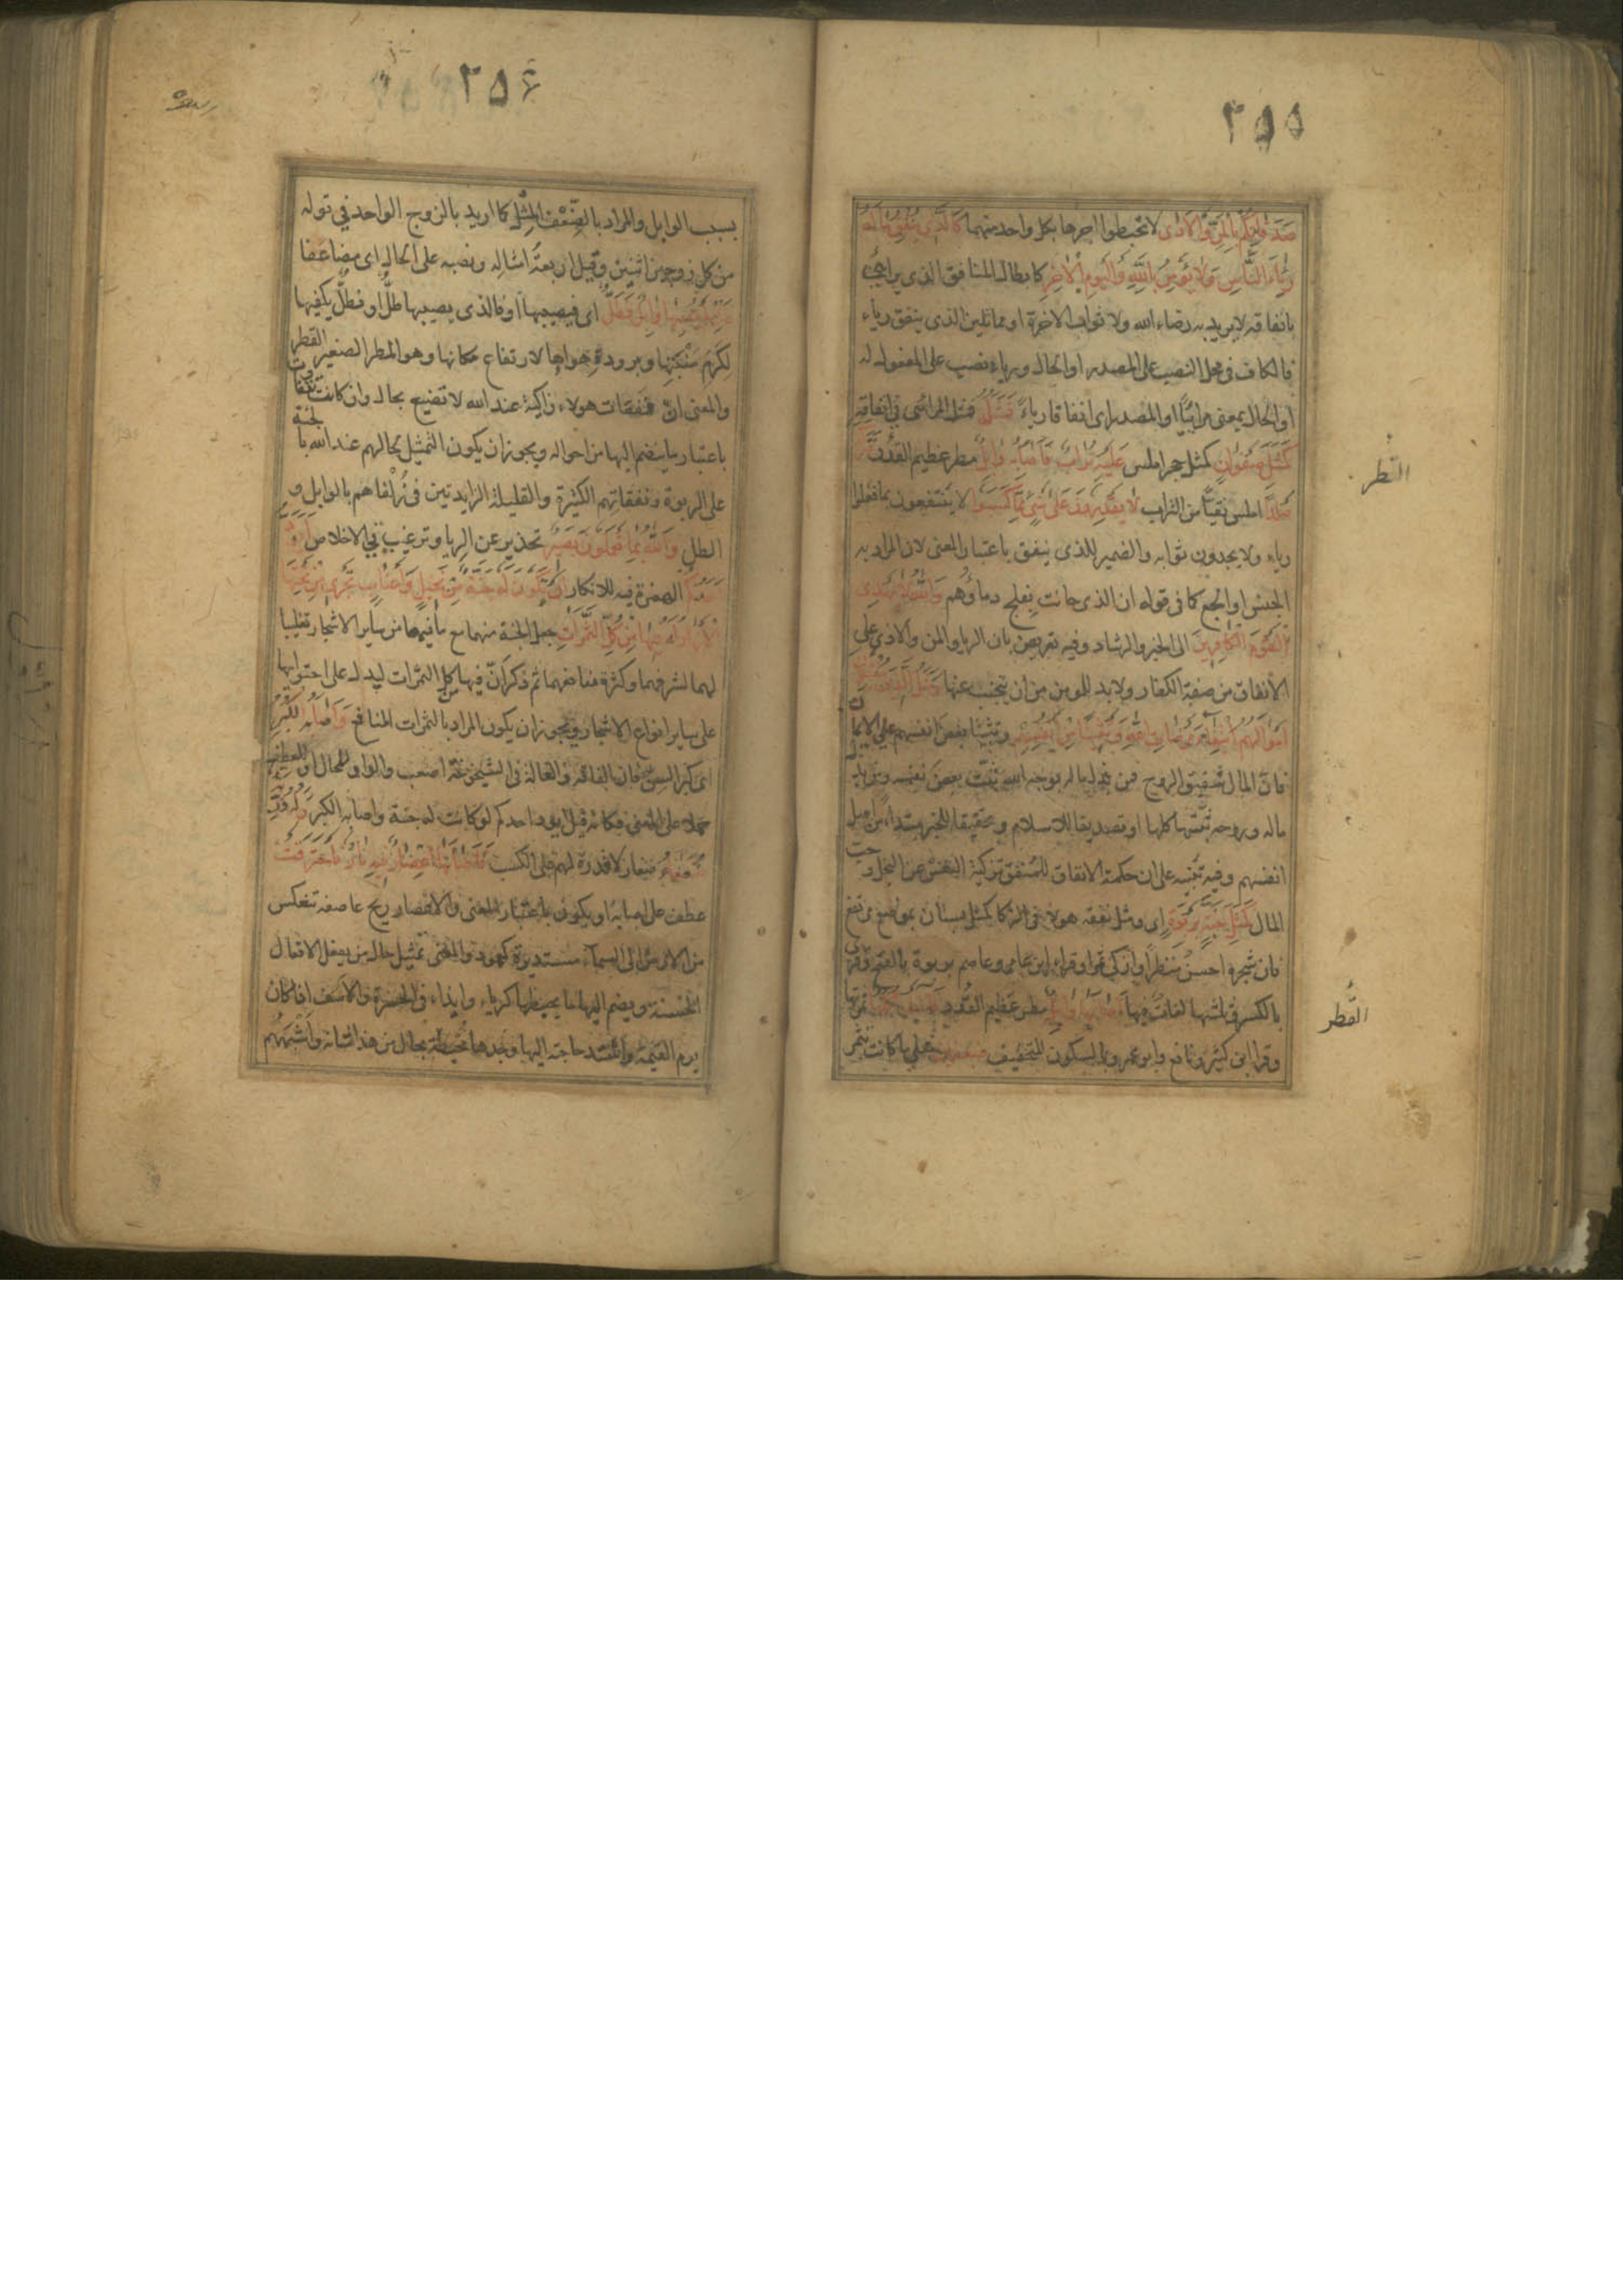 ٢٥٥
صَدَقَاتِكُمْ بِالْمَنِّ وَالْأَذَى لا تحبطوا اجرها بكل واحد منهما كَالَّذِي يُنْفِقُ مَالَهُ
رِئَاءَ النَّاسِ وَلَا يُؤْمِنُ بِاللَّهِ وَالْيَوْمِ الْآخِرِ كابطال المنافق الذي يرائي
بانفاقه لا يريد به رضاء الله ولا ثواب الاخرة او مماثلين الذي ينفق رياء
فالكاف في محل النصب على المصدر او الحال ورياء نصب على المفعول له
او الحال بمعنى مرائيا او المصدر اى انفاقا رياء فَمَثَلُهُ فمثل المرائى في انفاقه
كَمَثَلِ صَفْوَانٍ كمثل حجر املس عَلَيْهِ تُرَابٌ فَأَصَابَهُ وَابِلٌ مطر عظيم القطر
صَلْدًا املس نقيا من التراب لَا يَقْدِرُونَ عَلَى شَيْءٍ مِمَّا كَسَبُوا لا ينتفعون بما فعلوا
رياء ولا يجدون ثوابه والضمير للذى ينفق باعتبار المعنى لان المراد به
الجنس او الجمع كما فى قوله ان الذى حانت بفلج دماؤهم وَاللَّهُ لَا يَهْدِي
الْقَوْمَ الْكَافِرِينَ الى الخير والرشاد وفيه تعريض بان الريا والمن والاذى على
الانفاق من صفة الكفار ولا بد للمومن من ان يتجنب عنها وَمَثَلُ الَّذِينَ يُنْفِقُونَ
أَمْوَالَهُمُ ابْتِغَاءَ مَرْضَاتِ اللَّهِ وَتَثْبِيتًا مِنْ أَنْفُسِهِمْ وتثبيتا بعض انفسهم على الايمان
فان المال شقيق الروح فمن بذل ماله لوجه الله ثبت بعض نفسه ومن بذل
ماله وروحه ثبتها كلها او تصديقا للاسلام وتحقيقا للجزاء مبتداء من اصل
انفسهم وفيه تنبيه على ان حكمة الانفاق للمنفق تزكية النفس عن البخل وحب
المال كَمَثَلِ جَنَّةٍ بِرَبْوَةٍ اى ومثل نفقة هولاء في الزكا كمثل بستان بموضع مرتفع
فان شجره احسن منظرا وازكى ثمرا وقراء ابن عامر وعاصم بربوة بالفتح وقرى
بالكسر وثلثتها لغات فيها أَصَابَهَا وَابِلٌ مطر عظيم القطر فَآتَتْ أُكُلَهَا ثمرتها
وقرا ابن كثير ونافع وابو عمرو بالسكون للتخفيف ضِعْفَيْنِ مثلى ما كانت تثمر
القطر
القطر
٢٥۶
بسبب الوابل والمراد بالضعف المثل كما اريد بالزوج الواحد في قوله
من كل زوجين اثنين وقيل اربعة امثاله ونصبه على الحال اى مضاعفا
فَإِنْ لَمْ يُصِبْهَا وَابِلٌ فَطَلٌّ اى فيصيبها او فالذى يصيبها طل او فطل يكفيها
لكرم منبتها وبرودة هوائها لارتفاع مكانها وهو المطر الصغير القطر
والمعنى ان نفقات هولاء زاكية عند الله لا تضيع بحال وان كانت تتفاوت
باعتبار ما ينضم اليها من احواله ويجوز ان يكون التمثيل لحالهم عند الله بالجنة
على الربوة ونفقاتهم الكثيرة والقليلة الزايدتين في زلفاهم بالوابل و
الطل وَاللَّهُ بِمَا تَعْمَلُونَ بَصِيرٌ تحذير عن الريا وترغيب في الاخلاص أَيَوَدُّ
أَحَدُكُمْ الهمزة فيه للانكار أَنْ تَكُونَ لَهُ جَنَّةٌ مِنْ نَخِيلٍ وَأَعْنَابٍ تَجْرِي مِنْ تَحْتِهَا
الْأَنْهَارُ لَهُ فِيهَا مِنْ كُلِّ الثَّمَرَاتِ جعل الجنة منهما مع ما فيها من ساير الاشجار تغليبا
لهما لشرفهما وكثرة منافعهما ثم ذكر ان فيها من كل الثمرات ليدل على احتوائها
على ساير انواع الاشجار ويجوز ان يكون المراد بالثمرات المنافع وَأَصَابَهُ الْكِبَرُ
اى كبر السن فان الفاقة والعالة فى الشيخوخة اصعب والواو للحال او للعطف
حملا على المعنى فكانه قيل ايود احدكم لو كانت له جنة واصابه الكبر وَلَهُ ذُرِّيَّةٌ
ضُعَفَاءُ صغار لا قدرة لهم على الكسب فَأَصَابَهَا إِعْصَارٌ فِيهِ نَارٌ فَاحْتَرَقَتْ
عطف على اصابه او يكون باعتبار المعنى والاعصار ريح عاصفة تنعكس
من الارض الى السماء مستديرة كعمود والمعنى تمثيل حال من يفعل الافعال
الحسنة ويضم اليها ما يحبطها كرياء وايذاء فى الحسرة والاسف اذا كان
يوم القيمة واشتد حاجته اليها وجدها محبطة بحال من هذا شانه واشبههم